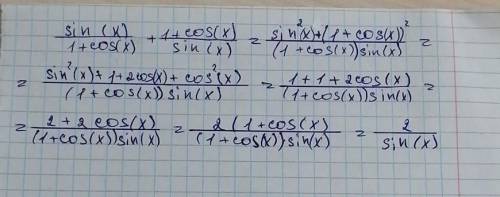 sin(x)/(1+cos(x)) + (1+cos(x))/sin(x) = (sin²(x)+(1+cos(x))²)/((1+cos(x))sin(x)) =
= (sin²(x)+1+2cos(x)+cos²(x))/((1+cos(x))sin(x)) = (1+1+2cos(x))/((1+cos(x))sin(x)) =
= (2+2cos(x))/((1+cos(x))sin(x)) = (2(1+cos(x))/((1+cos(x))sin(x)) = 2/sin(x)